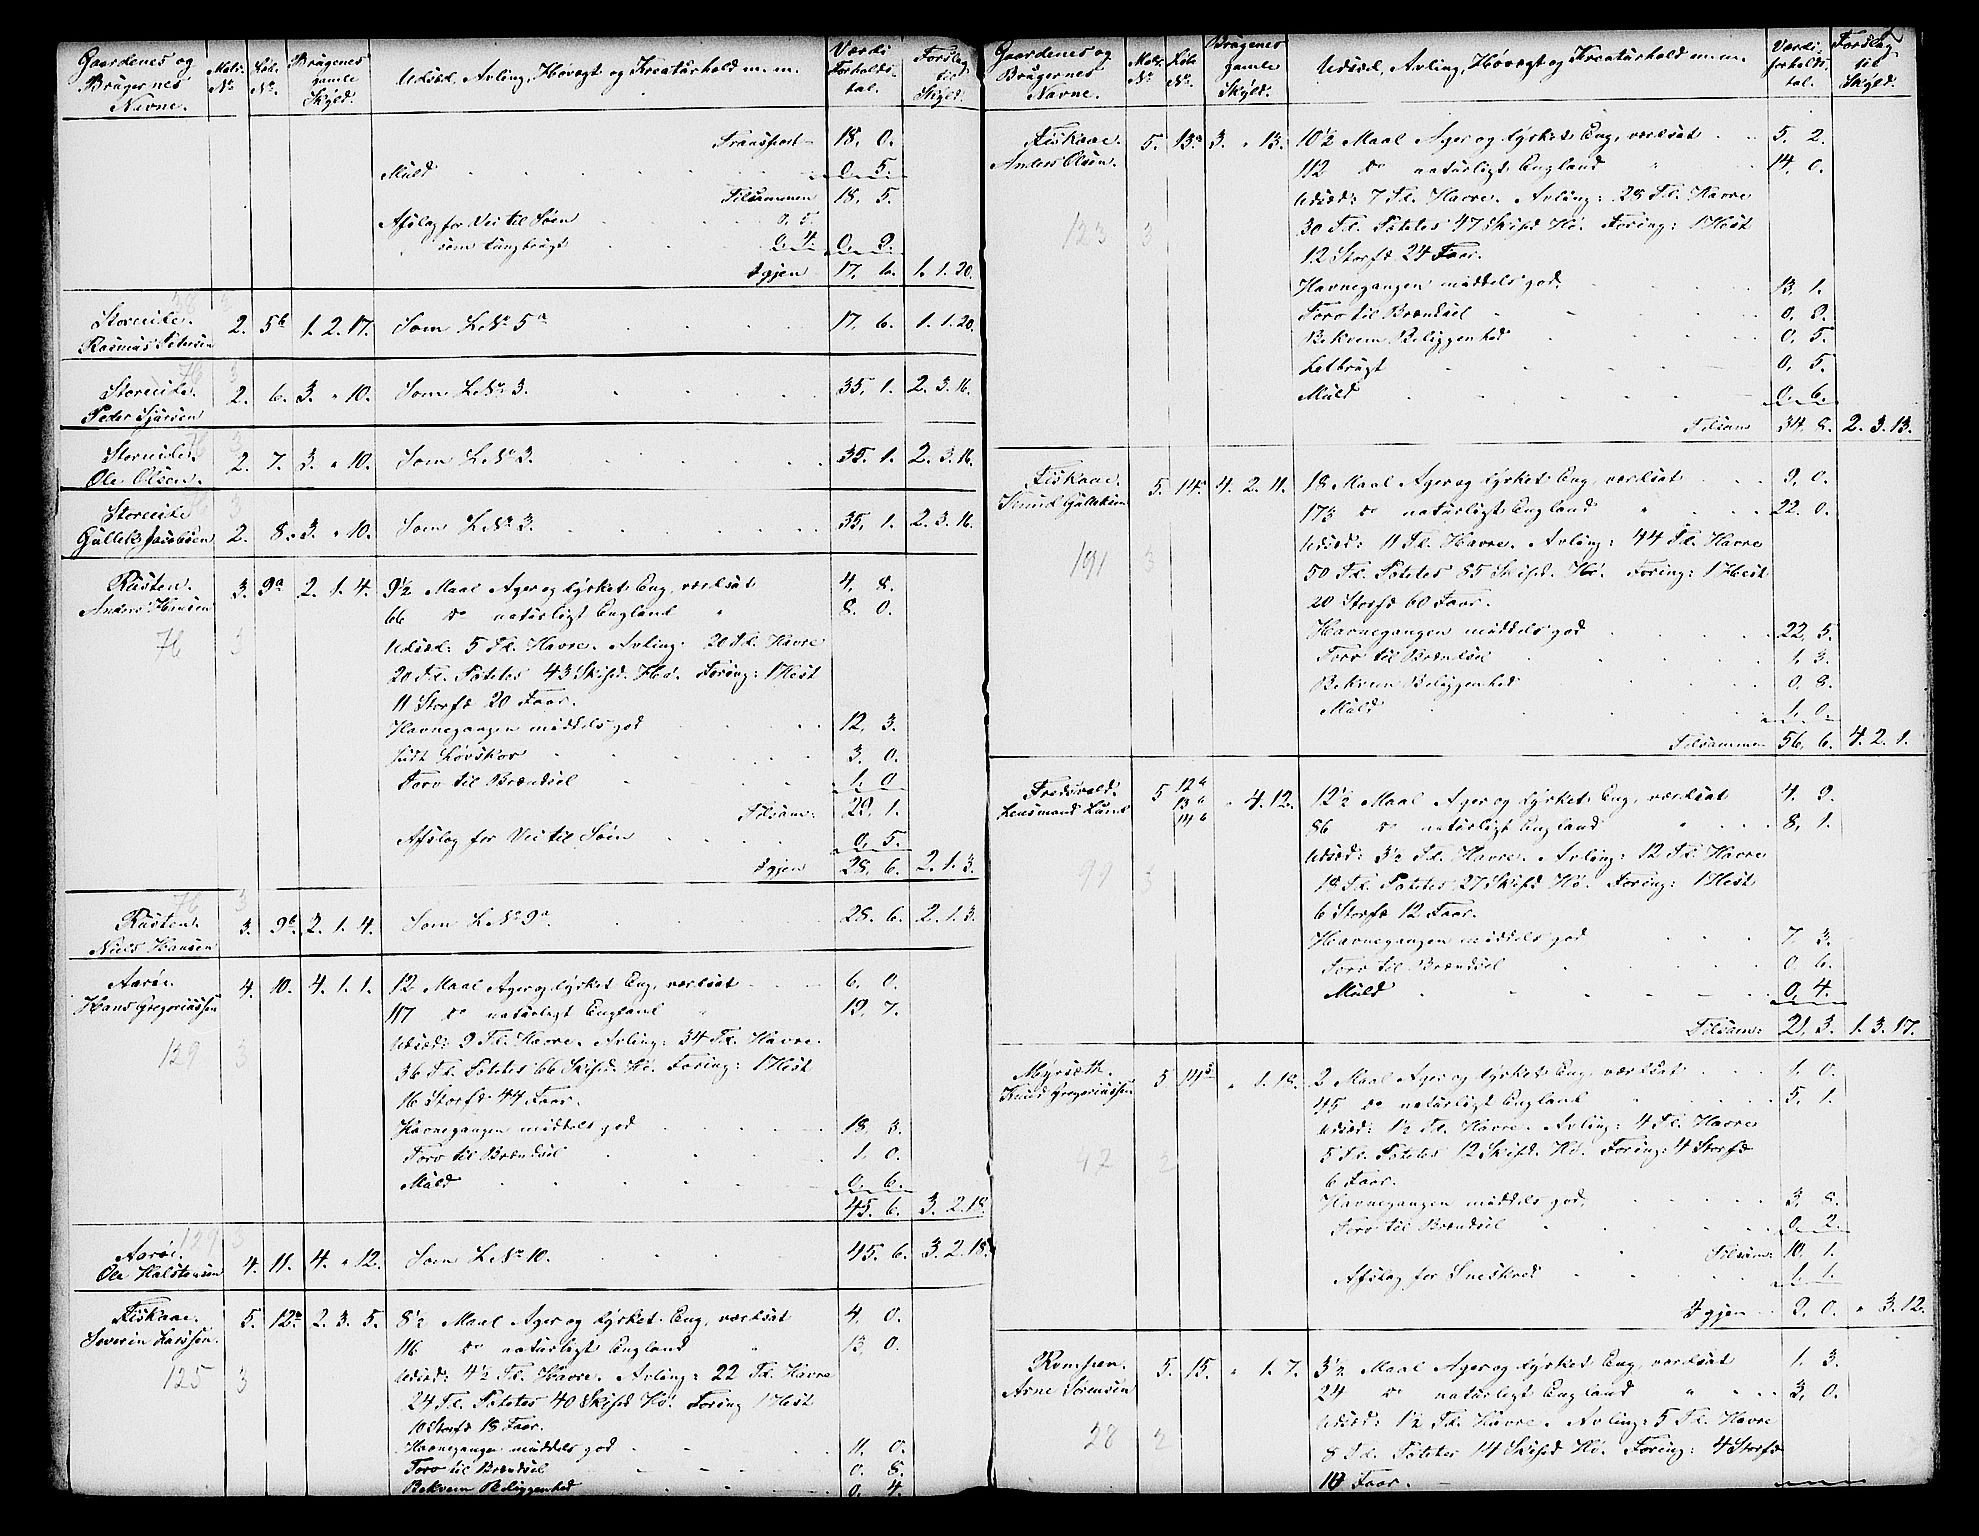 Gaardenes og Brugernes Navne. Matr. No Løb. No. Brugenes gamle Skyld. Udsæd, Avling, Høvægt og Kreaturhold m. m. Værdi Forholds-tal. Forslag til Skyld.
Transport 18. 0.
Muld 0. 5.
Tilsammen 18. 5.
Afslag for Vei til Søen 0. 5.
som tungbrugt 0. 4. 0. 9.
Igjen 17. 6. 1. 1. 20.
Storeide. 2. 5b 1. 2. 17. Som L. No 5a 17. 6. 1. 1. 20.
Rasmus Petersen
76 3
Storeide. 2. 6. 3. " 10. Som L. No 3. 35. 1. 2. 3. 16.
Peder
76 3
Storeide. 2. 7. 3. " 10. Som L. No 3. 35. 1. 2. 3. 16.
Ole Olsen.
3
Storeide 2. 8. 3. " 10. Som L. No 3. 35. 1. 2. 3. 16.
Gullik Jacobsen
Rusten. 3. 9a 2. 1. 4. 9½ Maal Ager og dyrket Eng, værdsat 4. 8.
Anders Hansen 66 do naturligt England " 8. 0.
76 3 Udsæd: 5 Td. Havre. Avling: 20 Td. Havre
20 Td. Potetes 43 Skipd. Hø. Foring: 1 Hest
11 Storfæ 20 Faar.
Havnegangen middels god 12. 3.
Lidt Løvskov 3. 0.
Torv til Brændsel 1. 0
Tilsam: 29. 1.
Afslag for Vei til Søen 0. 5.
Igjen 28. 6. 2. 1. 3.
76 3
Rusten. 3. 9b. 2. 1. 4. Som L. No 9a 28. 6. 2. 1. 3.
Niels Hansen
Aarøe. 4. 10. 4. 1. 1. 12 Maal Ager og dyrket Eng, værdsat 6. 0.
Hans Gregoriussen 117 do naturligt England " 19. 7.
129 3 Udsæd: 9 Td. Havre. Avling: 34 Td. Havre.
36 Td. Potetes 66 Skipd. Hø. Foring: 1 Hest
16 Storfæ 44 Faar.
Havnegangen middels god 18. 3.
Torv til Brændsel 1. 0.
Muld 0. 6.
45. 6. 3. 2. 18.
129 3
Aarøe. 4. 11. 4. " 12. Som L. No 10. 45. 6. 3. 2. 18.
Ole Halstensen
Fiskaae. 5. 12a 2. 3. 5. 8½ Maal Ager og dyrket Eng, værdsat 4. 0.
Severin Larssen. 116 do naturligt England " 13. 0.
125 3 Udsæd: 4½ Td. Havre. Avling: 22 Td. Havre
24 Td. Potetes 40 Skipd Hø. Foring 1 Hest
10 Storfæ 18 Faar.
Havnegangen middels god 11. 0.
Torv til Brændsel 0. 8.
Bekvem Beliggenhed 0. 4.
Gaardenes og Brugernes Navne. Matr. No Løb No. Brugenes gamle Skyld. Udsæd, Avling, Høvægt og Kreaturhold m. m. Værdi-forholds-tal. Forslag til Skyld.
Fiskaae. 5. 13a 3. " 13. 10½ Maal Ager og dyrket Eng, værdsat 5. 2.
Anders Olsen. 112 do naturligt England " 14. 0.
Udsæd: 7 Td. Havre. Avling: 28 Td. Havre
123 3 30 Td. Potetes 47 Skipd Hø. Foring: 1 Hest
12 Storfæ 24 Faar.
Havnegangen middels god. 13. 1.
Torv til Brændsel 0. 9.
Bekvem Beliggenhed 0. 5.
Letbrugt 0. 5.
Muld 0. 6.
Tilsam 34. 8. 2. 3. 13.
Fiskaae. 5. 14a 4. 2. 11. 18 Maal Ager og dyrket Eng, værdsat 9. 0.
Knud Gulliksen 173 do naturligt England " 22. 0.
Udsæd: 11 Td. Havre. Avling: 44 Td. Havre
191 3 50 Td. Potetes 85 Skipd. Hø. Foring: 1 Hest
20 Storfæ 60 Faar.
Havnegangen middels god 22. 5.
Torv til Brændsel 1. 3.
Bekvem Beliggenhed 0. 8.
Muld 1. 0.
Tilsammen 56. 6. 4. 2. 1.
Fredsvold. 5 12b 13b 14b " 4. 12. 12½ Maal Ager og dyrket Eng, værdsat 4. 9.
Lensmand Lund 86 do naturligt England " 8. 1.
Udsæd: 3½ Td. Havre. Avling: 12 Td. Havre
99 3 18 Td. Potetes 27 Skipd Hø. Foring: 1 Hest
6 Storfæ 12 Faar.
Havnegangen middels god 7. 3.
Torv til Brændsel 0. 6.
Muld 0. 4.
Tilsam: 21. 3. 1. 3. 17.
Myrsæth. 5 14c " 1. 18. 2 Maal Ager og dyrket Eng, værdsat 1. 0.
Knud Gregoriussen 45 do naturligt England " 5. 1.
Udsæd: 1½ Td. Havre. Avling: 4 Td. Havre
42 2 5 Td. Potetes 12 Skipd. Hø. Foring: 4 Storfæ
6 Faar.
Havnegangen middels god. 3. 8.
Torv til Brændsel 0. 2.
Tilsam: 10. 1.
Afslag for Sneskred 1. 1.
Igjen 9. 0. " 3. 12.
Rempen. 5. 15. " 1. 7. 3½ Maal Ager og dyrket Eng, værdsat 1. 3.
Arne Sorensen 24 do naturligt England " 3. 0.
Udsæd: 1½ Td. Havre. Avling: 5 Td. Havre
28 2 8 Td. Potetes 14 Skipd Hø. Foring: 4 Storfæ
10 Faar.